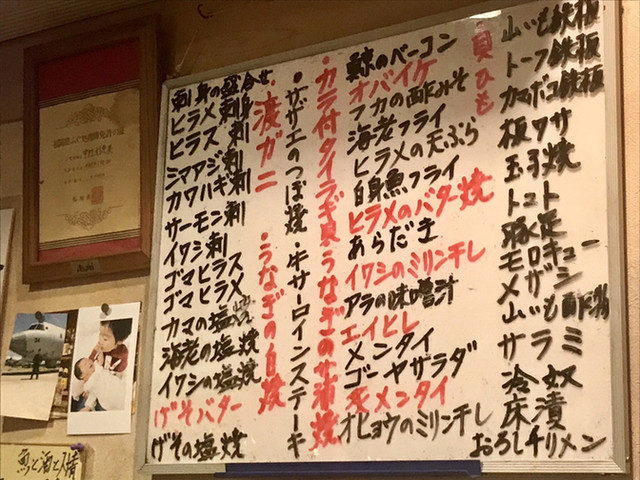 山いも鉄板
トーフ鉄板
カマボコ鉄板
板ワサ
玉子焼
トマト
豚足
モロキュー
メザシ
山いも
サラミ
冷奴
床漬
おろしチリメン
・貝ひも
鯨のベーコン
オバイケ
フカの酢みそ
海老フライ
ヒラメの天ぷら
白身魚フライ
ヒラメのバター焼
あらだき
イワシのミリン干し
アラの味噌汁
エイヒレ
メンタイ
ゴーヤサラダ
炙メンタイ
オヒョウのミリン干し
・カラ付タイラギ貝
うなぎのかば焼
・サザエのつぼ焼
・牛サーロインステーキ
・渡ガニ
・うなぎの白焼
刺身の盛合せ
ヒラメ刺身
ヒラス刺
シマアジ刺
カワハギ刺
サーモン刺
イワシ刺
ゴマヒラス
ゴマヒラメ
カマの塩焼
海老の塩焼
イワシの塩焼
げそバター
げその塩焼
魚と酒と人情